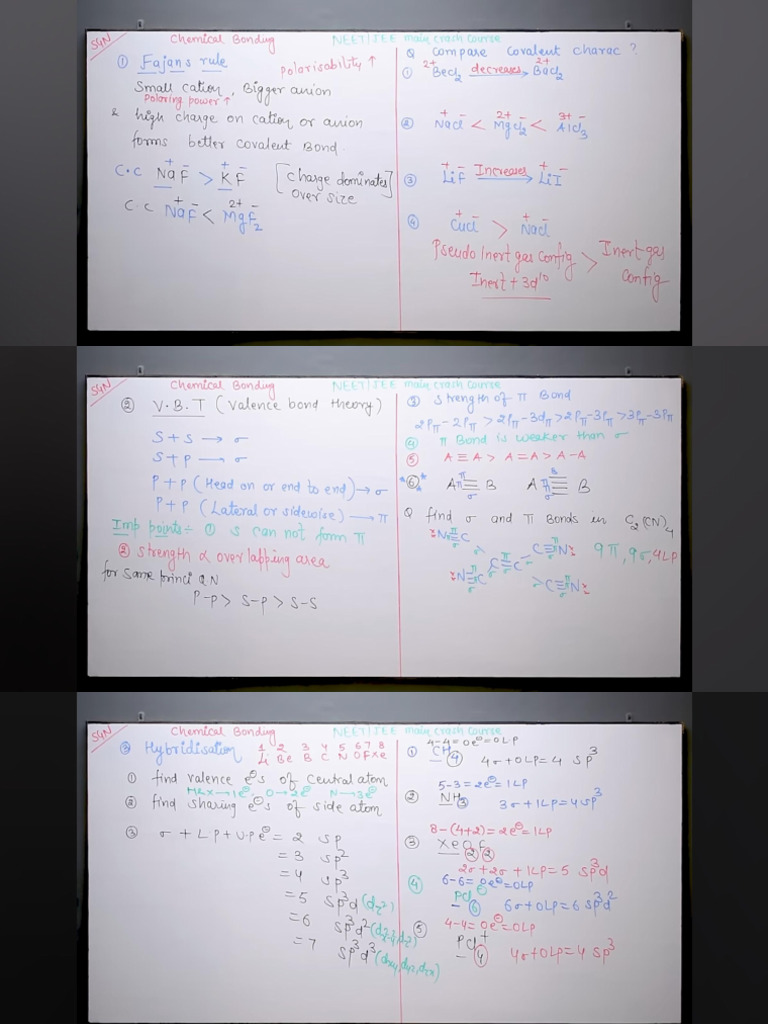 S4N
Chemical Bonding
NEET/JEE main crash course
① Fajans rule
Polarisability ↑
Small cation, Bigger anion
Polaring power ↑
& high charge on cation or anion
forms better covalent Bond
C.C Na⁺F⁻ > K⁺F⁻ [Charge dominates over size]
C.C Na⁺F⁻ < Mg²⁺F₂⁻
Q Compare Covalent charac ?
① ²⁺BeCl₂ decreases→ ²⁺BaCl₂
② Na⁺Cl⁻ < Mg²⁺Cl₂⁻ < Al³⁺Cl₃⁻
③ Li⁺F⁻ Increases→ Li⁺I⁻
④ Cu⁺Cl⁻ > Na⁺Cl⁻
Pseudo Inert gas config > Inert gas config
Inert + 3d¹⁰
S4N
Chemical Bonding
NEET/JEE main crash course
② V.B.T (Valence bond theory)
S + S → σ
S + P → σ
P + P (Head on or end to end) → σ
P + P (Lateral or sidewise) → π
Imp points ÷ ① S can not form π
② strength ∝ overlapping area
for same princi Q N
P-P > S-P > S-S
③ strength of π Bond
2Pπ-2Pπ > 2Pπ-3dπ > 2Pπ-3Pπ > 3Pπ-3Pπ
④ π Bond is weaker than σ
⑤ A≡A > A=A > A-A
*⑥* A≡B A≡B
Q find σ and π Bonds in C₂(CN)₄
N≡C C≡N
C=C 9π, 9σ, 4LP
N≡C C≡N
S4N
Chemical Bonding
NEET/JEE main crash course
③ Hybridisation
1 2 3 4 5 6 7 8
Li Be B C N O F Xe
① find valence e⁻s of Central atom
H & X→1e⁻, O→2e⁻ N→3e⁻
② find sharing e⁻s of side atom
③ σ + LP + U.P e⁻ = 2 sp
= 3 sp²
= 4 sp³
= 5 sp³d (dz²)
= 6 sp³d² (dx²-y², dz²)
= 7 sp³d³ (dxy, dyz, dzx)
4-4=0e⁻=0LP
① CH④ 4σ+0LP=4 sp³
5-3=2e⁻=1LP
② NH③ 3σ+1LP=4 sp³
8-(4+2)=2e⁻=1LP
③ XeO②F②
2σ+2σ+1LP=5 sp³d
6-6=0e⁻=0LP
④ PCl⑥⁻ 6σ+0LP=6 sp³d²
4-4=0e⁻=0LP
⑤ PCl④⁺ 4σ+0LP=4 sp³